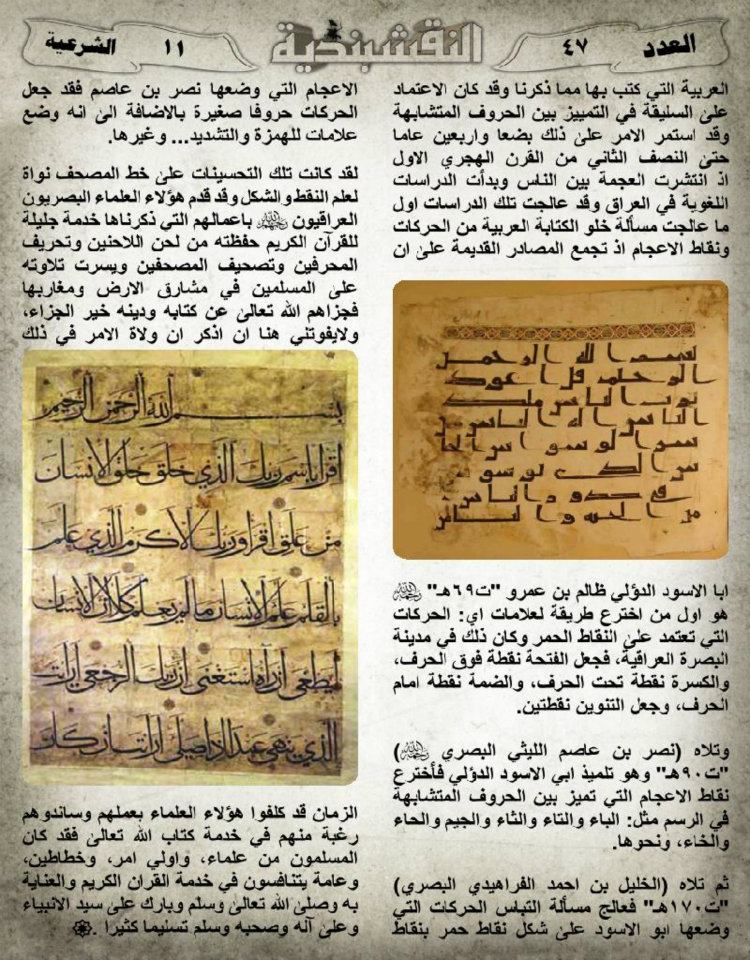 العدد ٤٧
النقشبندية
١١ الشرعية
العربية التي كتب بها مما ذكرنا وقد كان الاعتماد
على السليقة في التمييز بين الحروف المتشابهة
وقد استمر الامر على ذلك بضعا واربعين عاما
حتى النصف الثاني من القرن الهجري الاول
اذ انتشرت العجمة بين الناس وبدأت الدراسات
اللغوية في العراق وقد عالجت تلك الدراسات اول
ما عالجت مسألة خلو الكتابة العربية من الحركات
ونقاط الاعجام اذ تجمع المصادر القديمة على ان
ابا الاسود الدؤلي ظالم بن عمرو "ت٦٩هـ"
هو اول من اخترع طريقة لعلامات اي: الحركات
التي تعتمد على النقاط الحمر وكان ذلك في مدينة
البصرة العراقية، فجعل الفتحة نقطة فوق الحرف،
والكسرة نقطة تحت الحرف، والضمة نقطة امام
الحرف، وجعل التنوين نقطتين.
وتلاه (نصر بن عاصم الليثي البصري)
"ت٩٠هـ" وهو تلميذ ابي الاسود الدؤلي فأخترع
نقاط الاعجام التي تميز بين الحروف المتشابهة
في الرسم مثل: الباء والتاء والثاء والجيم والحاء
والخاء، ونحوها.
ثم تلاه (الخليل بن احمد الفراهيدي البصري)
"ت١٧٠هـ" فعالج مسألة التباس الحركات التي
وضعها ابو الاسود على شكل نقاط حمر بنقاط
الاعجام التي وضعها نصر بن عاصم فقد جعل
الحركات حروفا صغيرة بالاضافة الى انه وضع
علامات للهمزة والتشديد... وغيرها.
لقد كانت تلك التحسينات على خط المصحف نواة
لعلم النقط والشكل وقد قدم هؤلاء العلماء البصريون
العراقيون باعمالهم التي ذكرناها خدمة جليلة
للقرآن الكريم حفظته من لحن اللاحنين وتحريف
المحرفين وتصحيف المصحفين ويسرت تلاوته
على المسلمين في مشارق الارض ومغاربها
فجزاهم الله تعالى عن كتابه ودينه خير الجزاء،
ولايفوتني هنا ان اذكر ان ولاة الامر في ذلك
بسم الله الرحمن الرحيم
اقرأ باسم ربك الذي خلق خلق الإنسان
من علق اقرأ وربك الأكرم الذي علم
بالقلم علم الإنسان ما لم يعلم كلا إن الإنسان
ليطغى أن رآه استغنى إن إلى ربك الرجعى أرأيت
الذي ينهى عبدا إذا صلى أرأيت إن كان
الزمان قد كلفوا هؤلاء العلماء بعملهم وساندوهم
رغبة منهم في خدمة كتاب الله تعالى فقد كان
المسلمون من علماء، واولي امر، وخطاطين،
وعامة يتنافسون في خدمة القران الكريم والعناية
به وصلى الله تعالى وسلم وبارك على سيد الانبياء
وعلى آله وصحبه وسلم تسليما كثيرا .